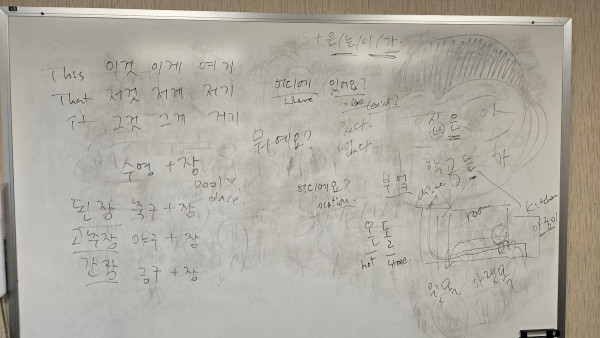 S + 은/는/이/가
This 이것 이게 여기
That 저것 저게 저기
It 그것 그게 거기
어디에 있어요?
where
있다.
없다
뭐예요?
집은 이
학교는 가
수영 + 장
pool
place.
어디에요?
부엌
된장 축구 + 장
고추장 야구 + 장
간장 농구 + 장
room
kitchen
온돌
hot stone
윗목 아랫목